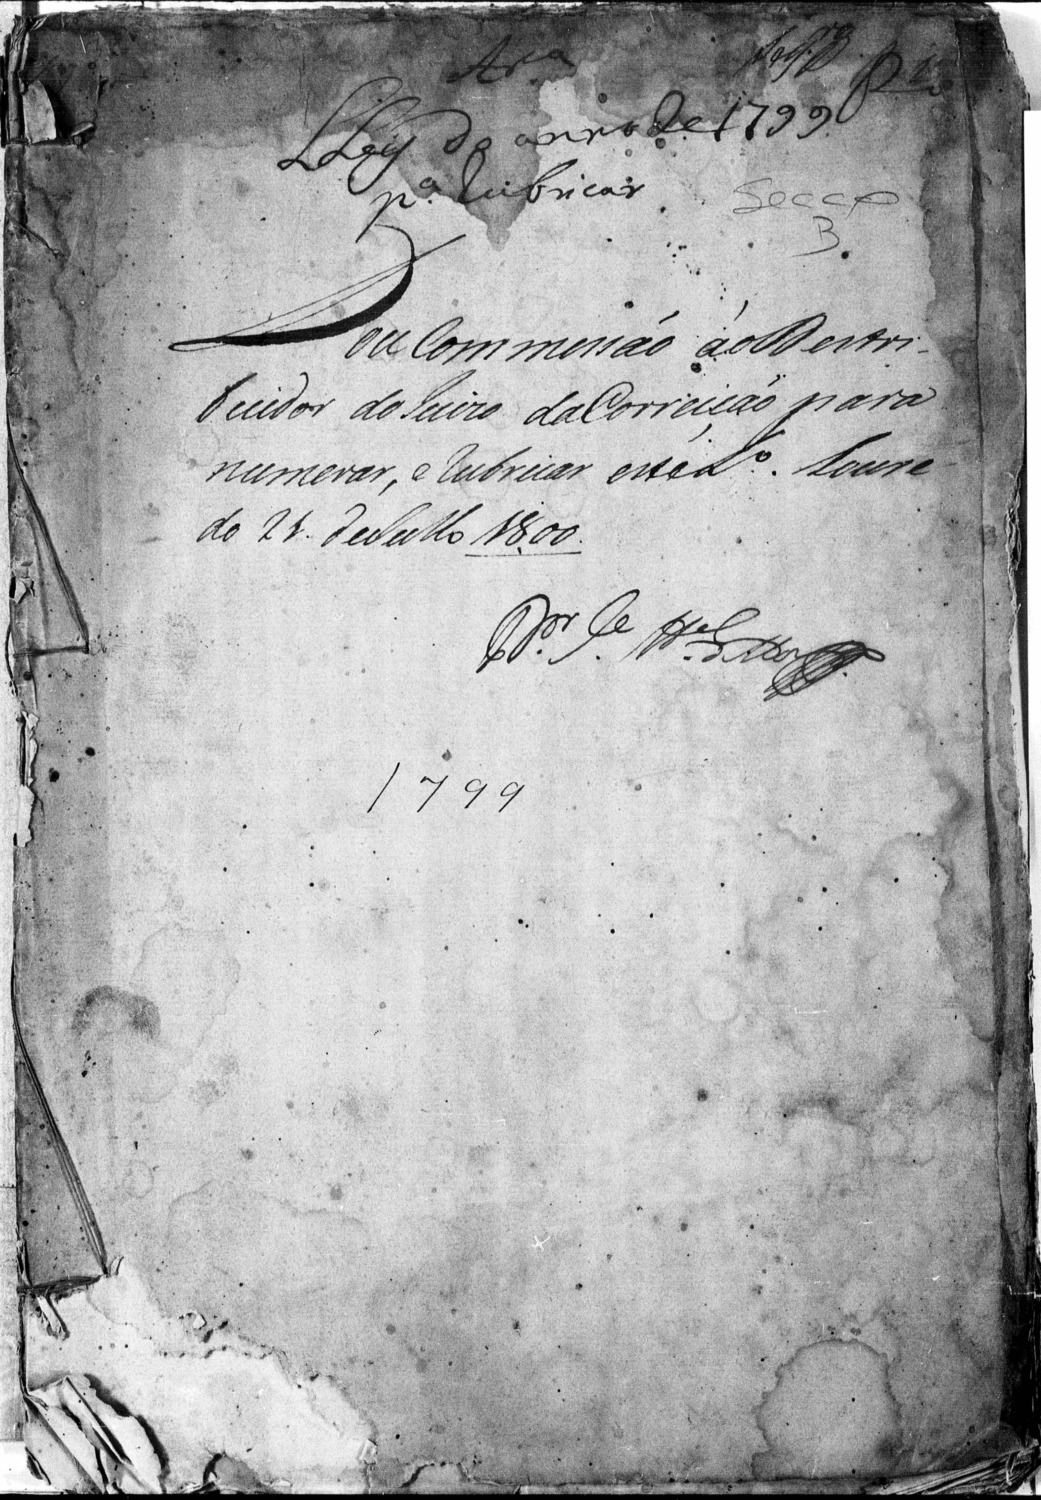 Ara
LLey do anno de 1799
pa. Rubricar
Secco
B
Dou Commissão ào Destri-
buidor do Juizo da Correição para
numerar, e rubricar este Lo. Loure-
do 21. de Julho 1800.
1799